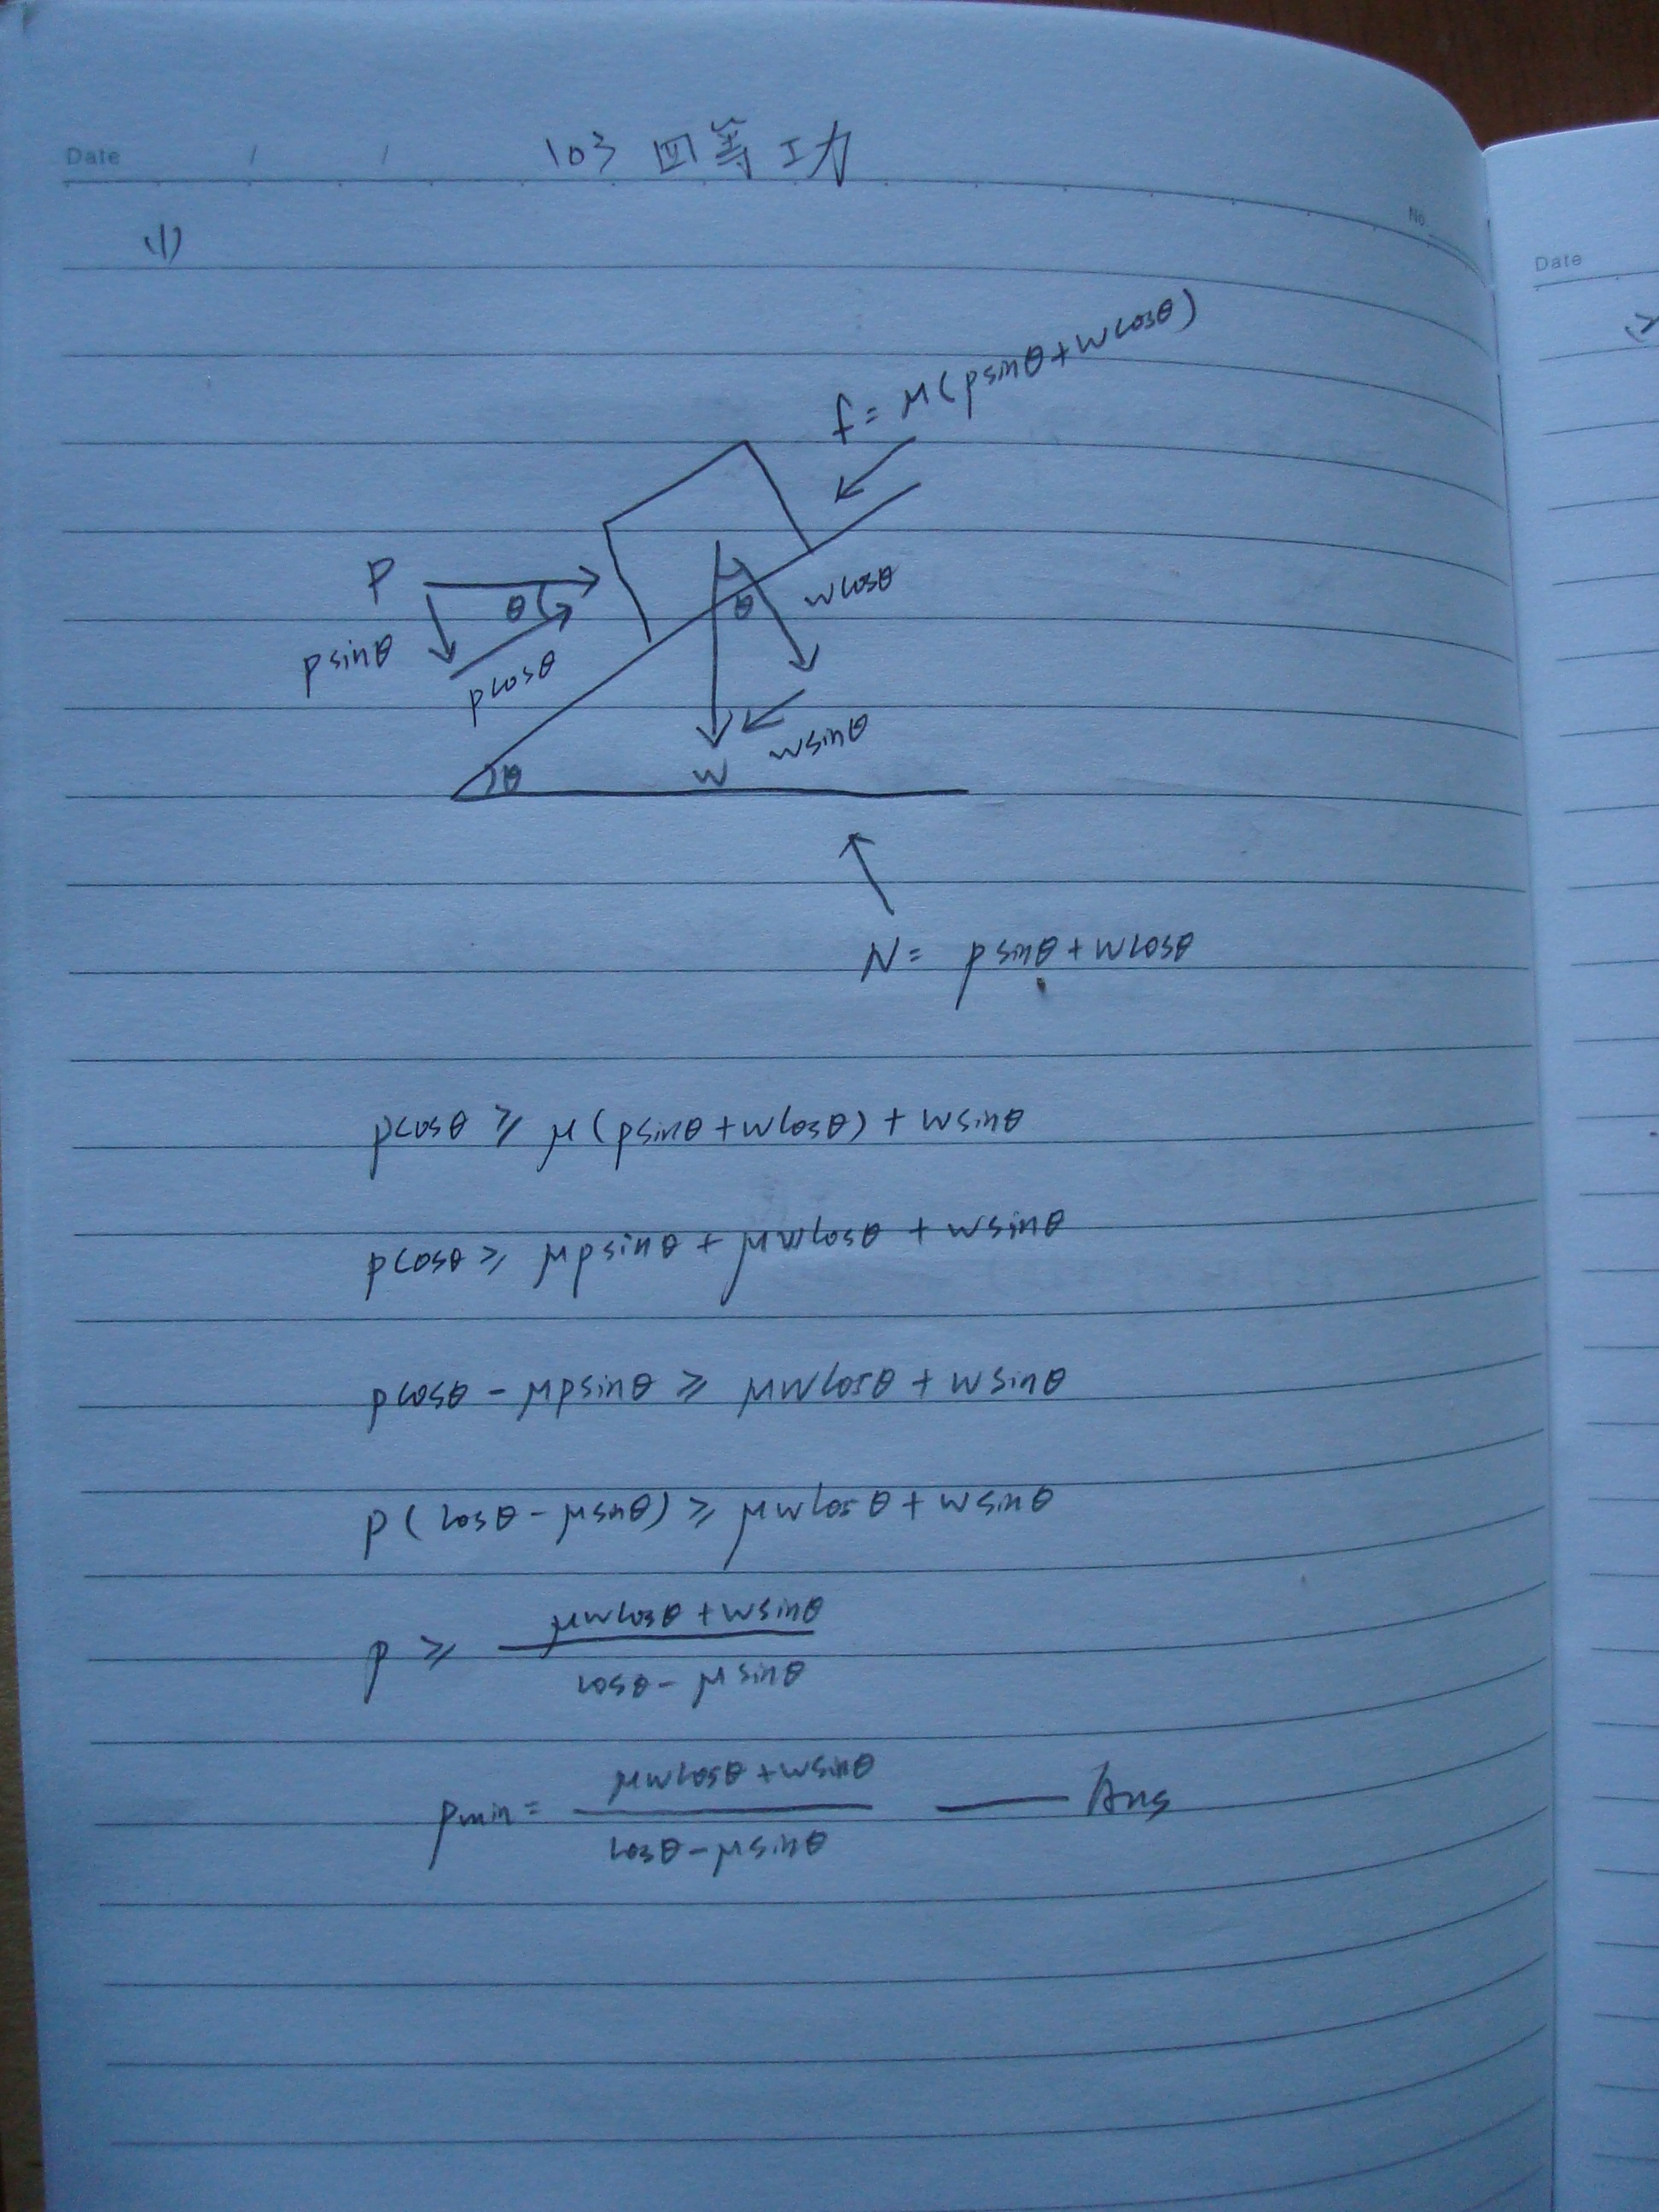 Date / / 103 四等工力
No.
Date
(1)
f = μ(psinθ+wcosθ)
P
θ
wcosθ
θ
psinθ
pcosθ
wsinθ
θ
w
N = psinθ+wcosθ
pcosθ ≥ μ(psinθ+wcosθ) + wsinθ
pcosθ ≥ μpsinθ + μwcosθ + wsinθ
pcosθ - μpsinθ ≥ μwcosθ + wsinθ
p(cosθ - μsinθ) ≥ μwcosθ + wsinθ
p ≥ μwcosθ + wsinθ
cosθ - μsinθ
pmin = μwcosθ + wsinθ —— Ans
cosθ - μsinθ